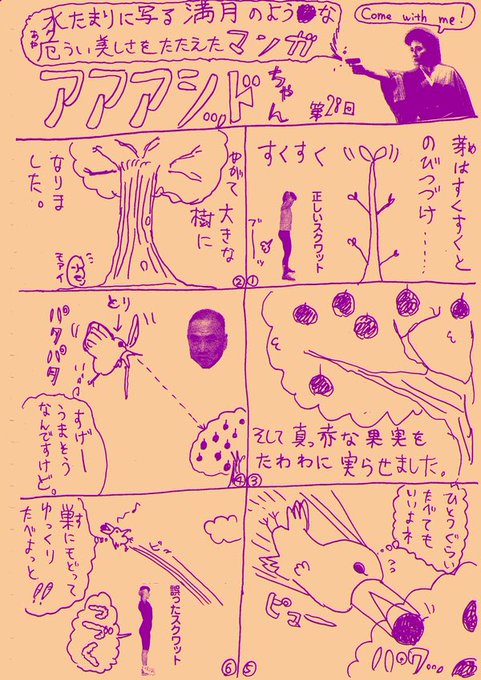 水たまりに写る満月のような
危うい美しさをたたえたマンガ
あや
Come with me!
アアアシッドちゃん
第28回
芽はすくすくと
のびつづけ……
め
すくすく
正しいスクワット
①
やがて大きな
樹に
なりま
した。
モアイ
②
そして真っ赤な果実を
たわわに実らせました。
③
とり
パタパタ
すげー
うまそう
なんですけど。
④
ひとつぐらい
たべても
いいよね
ピュー
パクッ
⑤
ピュー
巣にもどって
ゆっくり
たべよっと!!
す
誤ったスクワット
つづく
⑥